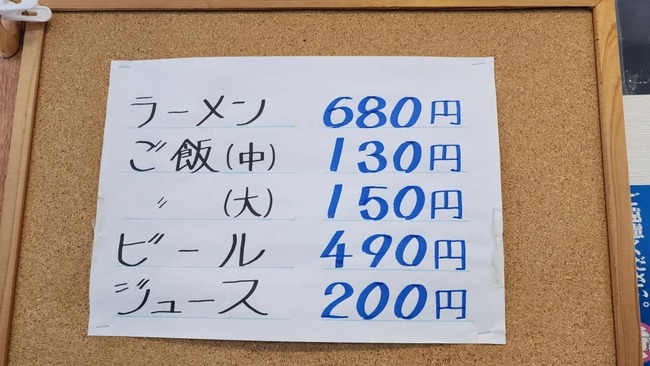 ラーメン 680円
ご飯(中) 130円
〃 (大) 150円
ビール 490円
ジュース 200円